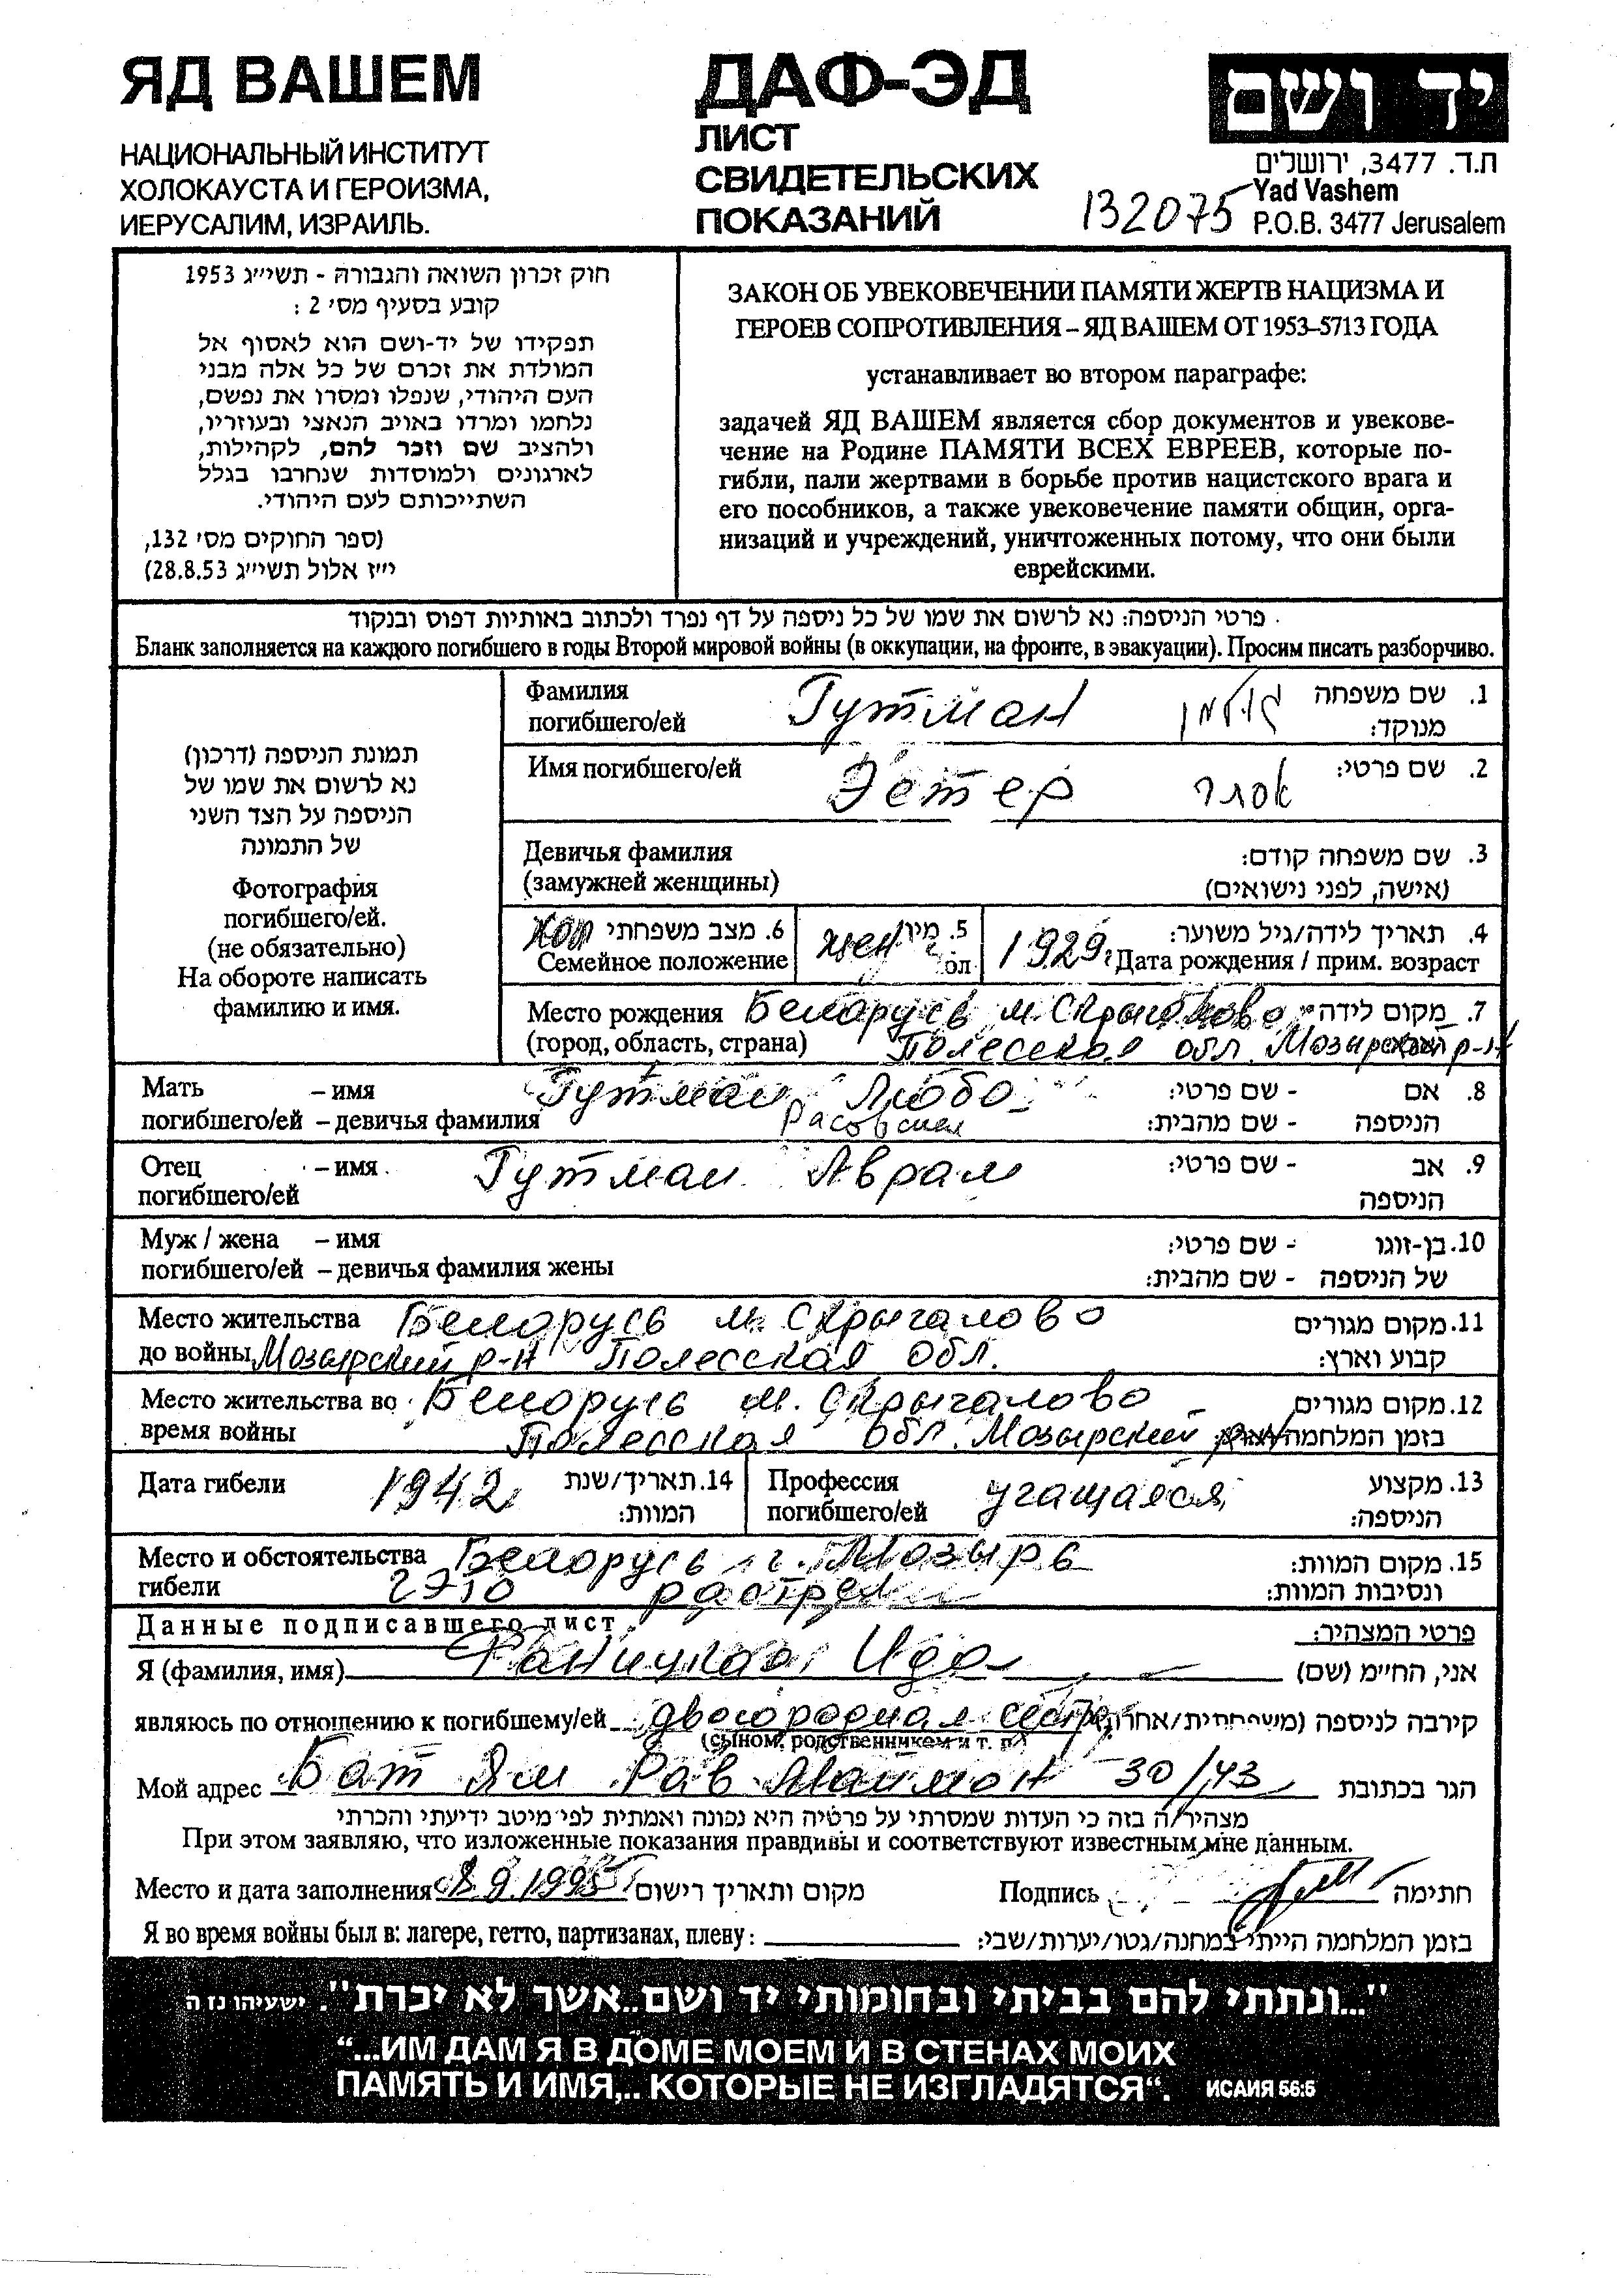 ЯД ВАШЕМ
НАЦИОНАЛЬНЫЙ ИНСТИТУТ
ХОЛОКАУСТА И ГЕРОИЗМА,
ИЕРУСАЛИМ, ИЗРАИЛЬ.
ДАФ-ЭД
ЛИСТ
СВИДЕТЕЛЬСКИХ
ПОКАЗАНИЙ
יד ושם
ת.ד. 3477, ירושלים
132075 Yad Vashem
P.O.B. 3477 Jerusalem
חוק זכרון השואה והגבורה - תשי״ג 1953
קובע בסעיף מס׳ 2 :
תפקידו של יד-ושם הוא לאסוף אל
המולדת את זכרם של כל אלה מבני
העם היהודי, שנפלו ומסרו את נפשם,
נלחמו ומרדו באויב הנאצי ובעוזריו,
ולהציב שם וזכר להם, לקהילות,
לארגונים ולמוסדות שנחרבו בגלל
השתייכותם לעם היהודי.
(ספר החוקים מס׳ 132,
י״ז אלול תשי״ג 28.8.53)
ЗАКОН ОБ УВЕКОВЕЧЕНИИ ПАМЯТИ ЖЕРТВ НАЦИЗМА И
ГЕРОЕВ СОПРОТИВЛЕНИЯ – ЯД ВАШЕМ ОТ 1953–5713 ГОДА
устанавливает во втором параграфе:
задачей ЯД ВАШЕМ является сбор документов и увекове-
чение на Родине ПАМЯТИ ВСЕХ ЕВРЕЕВ, которые по-
гибли, пали жертвами в борьбе против нацистского врага и
его пособников, а также увековечение памяти общин, орга-
низаций и учреждений, уничтоженных потому, что они были
еврейскими.
פרטי הניספה: נא לרשום את שמו של כל ניספה על דף נפרד ולכתוב באותיות דפוס ובנקוד
Бланк заполняется на каждого погибшего в годы Второй мировой войны (в оккупации, на фронте, в эвакуации). Просим писать разборчиво.
תמונת הניספה (דרכון)
נא לרשום את שמו של
הניספה על הצד השני
של התמונה
Фотография
погибшего/ей.
(не обязательно)
На обороте написать
фамилию и имя.
Фамилия
погибшего/ей Гутман גוטמן
1. שם משפחה
מנוקד:
Имя погибшего/ей Эстер אסתר 2. שם פרטי:
Девичья фамилия
(замужней женщины)
3. שם משפחה קודם:
(אישה, לפני נישואים)
хол 6. מצב משפחתי
Семейное положение
жен 5. מין
ол
4. תאריך לידה/גיל משוער:
1929г Дата рождения / прим. возраст
Место рождения Беларусь м. Скрыгалово 7. מקום לידה
(город, область, страна) Полесская обл. Мозырский р-н
Мать – имя Гутман Люба 8. אם - שם פרטי:
погибшего/ей – девичья фамилия הניספה - שם מהבית:
Отец – имя Гутман Аврам 9. אב - שם פרטי:
погибшего/ей הניספה
Муж / жена – имя 10. בן-זוגו - שם פרטי:
погибшего/ей – девичья фамилия жены של הניספה - שם מהבית:
Место жительства Белорусь м. Скрыгалово 11. מקום מגורים
до войны Мозырский р-н Полесская обл. קבוע וארץ:
Место жительства во Белорусь м. Скрыгалово 12. מקום מגורים
время войны Полесская обл. Мозырский р-н בזמן המלחמה
Дата гибели 1942 14. תאריך/שנת
המוות:
Профессия учащаяся 13. מקצוע
погибшего/ей הניספה:
Место и обстоятельства Белорусь г. Мозырь 15. מקום המוות:
гибели расстрел ונסיבות המוות:
Данные подписавшего лист פרטי המצהיר:
Я (фамилия, имя) Ида אני, החי״מ (שם)
являюсь по отношению к погибшему/ей двоюродная сестра קירבה לניספה (משפחתית/אחרת)
(сыном, родственником и т. п.)
Мой адрес Бат Ям Рав Маимон 30/43 הגר בכתובת
מצהיר/ה בזה כי העדות שמסרתי על פרטיה היא נכונה ואמתית לפי מיטב ידיעתי והכרתי
При этом заявляю, что изложенные показания правдивы и соответствуют известным мне данным.
Место и дата заполнения 8.9.1995 מקום ותאריך רישום Подпись חתימה
Я во время войны был в: лагере, гетто, партизанах, плену: בזמן המלחמה הייתי במחנה/גטו/יערות/שבי:
"...ונתתי להם בביתי ובחומותי יד ושם...אשר לא יכרת". ישעיהו נז ה
“...ИМ ДАМ Я В ДОМЕ МОЕМ И В СТЕНАХ МОИХ
ПАМЯТЬ И ИМЯ,.. КОТОРЫЕ НЕ ИЗГЛАДЯТСЯ“. ИСАИЯ 56:5